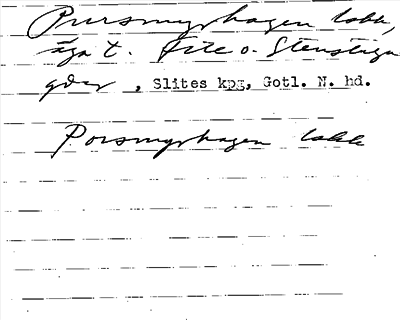 Pursmyrhagen lokk,
äga t. File o. Stenstuga
gdar, Slites kpg, Gotl. N. hd.
Porsmyrhagen lokk